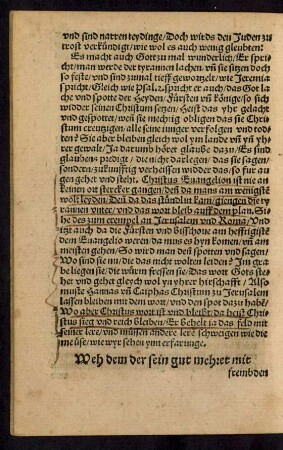 vnd sind narren teydinge/Doch wirds den Juden zu
trost verkündigt/wie wol es auch wenig gleubten!
Es macht auch Gott zu mal wunderlich/Er spri
cht/man werde der tyrannen lachen/vñ sie sitzen doch
so feste/vnd sind zumal tieff gewortzelt/wie Jeremia
spricht/Gleich wie Psal.2. spricht er auch/das Got la
che vnd spotte der Heyden/Fürsten vñ könige/so sich
widder seinen Christum setzen/Heist das yhr gelacht
vnd gespottet/wen sie mechtig obligen das sie Chri
stum creutzigen/alle seine iunger verfolgen vnd tod-
ten? Sie aber bleiben gleich wol ym lande vñ yñ yh-
rer gewalt/Ja darumb hörer glaube dazu/Es sind
glaubens predigt/die nicht darlegen/das sie sagen/
sondern zukunfftig verheissen widder das/so fur au
gen gehet vnd steht. Christus Euangelion ist nie an
keinen ort stercker gangen/denn da mans am wenigstē
wolt leyden/Den da das stündlin kam/giengen die ty
rannen vnter/vnd das wort bleib auff dem plan. Si-
he des zum exempel an Jerusalem vnd Roma/Vnd
itzt auch da die Fürsten vnd Bisschoue am hefftigistē
dem Euangelio weren/da mus es hyn komen/vñ am
meisten gehen/So wird man denn spotten vnd sagen/
Wo sind sie nu/die das nicht wolten leiden? Im gra
be liegen sie/die würm fressen sie/Das wort Gots steht
her vnd gehet gleych wol yn yhrer hirschafft/Also
muste Hannas vñ Caiphas Christum zu Jerusalem
lassen bleiben mit dem wort/vnd den spot dazu habē/
Wo aber Christus wort ist vnd bleibt/da heist Christ
us sieg vnd reich bleiben/Er behelt ia das feld mit
seiner lere/vnd müssen andere lere schweigen wie die
meuse/wie wyr sehen ynn erfarunge.
Weh dem der sein gut mehret mit
frembden